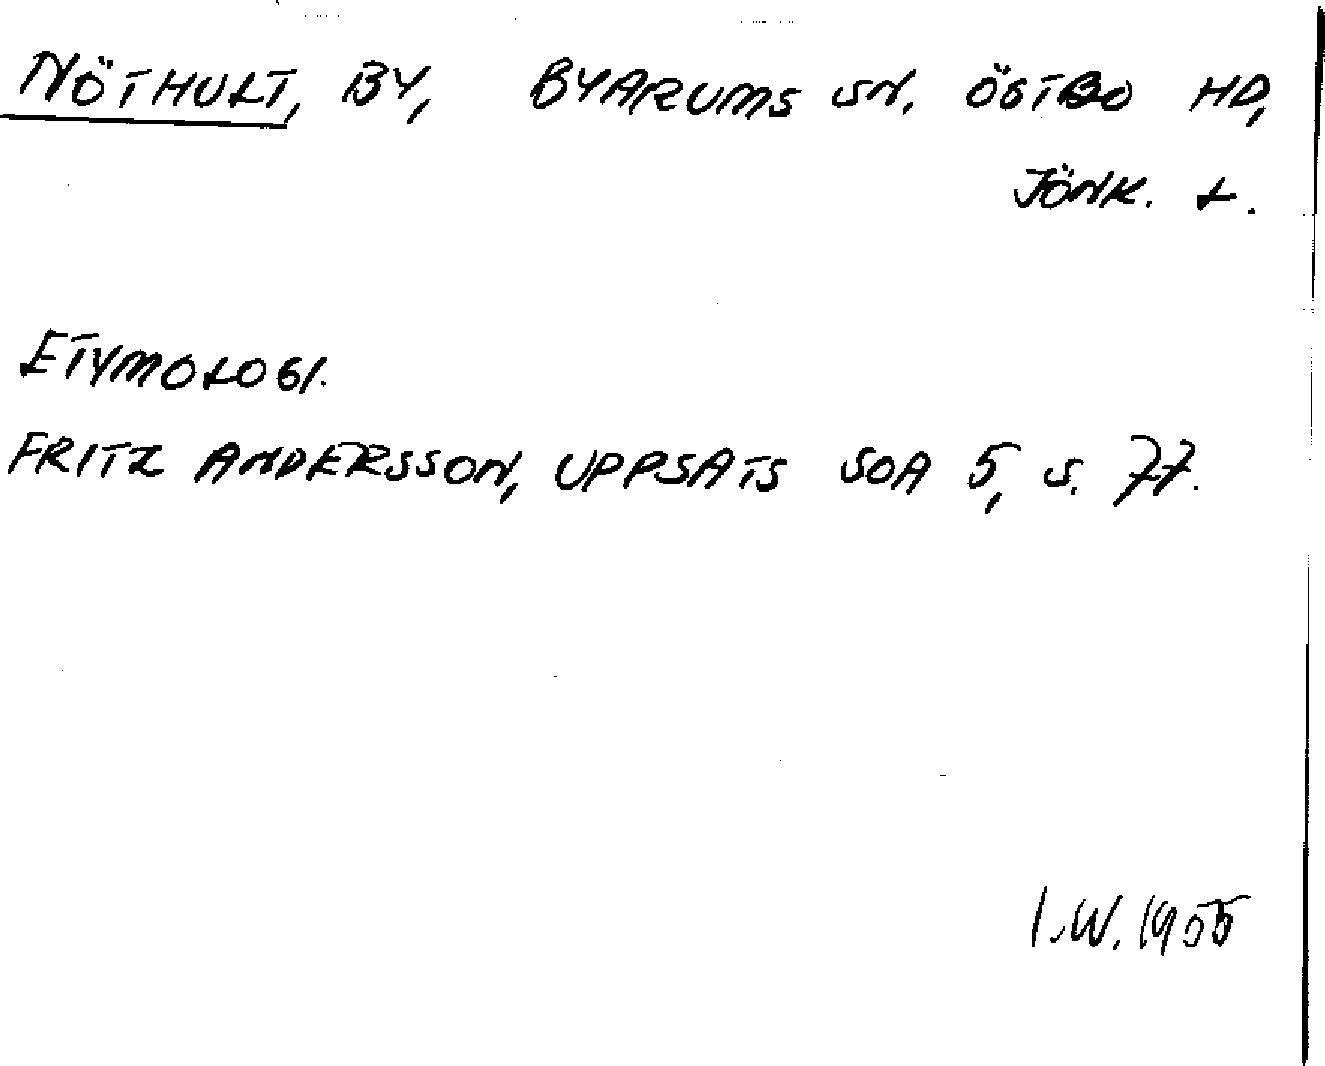 NÖTHULT, BY, BYARUMS SN. ÖSTBO HD,
JÖNK. L.
ETYMOLOGI.
FRITZ ANDERSSON, UPPSATS SOA 5, S. 77.
I.W. 1955